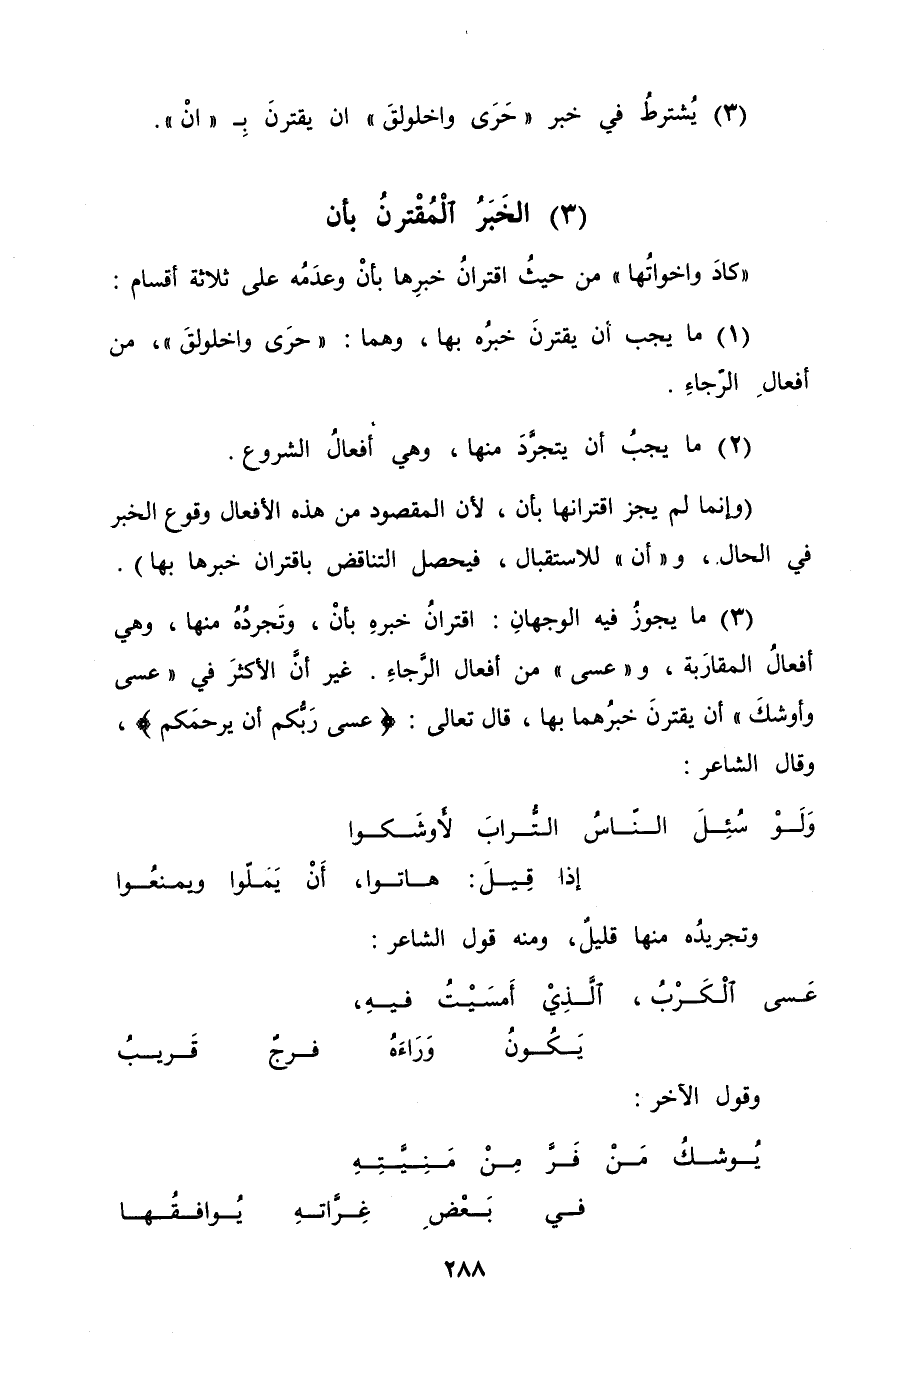 (٣) يُشترطُ في خبر « حَرَى واخلولقَ » ان يقترنَ بِـ « انْ ».
(٣) الخَبَرُ ٱلْمُقْترنُ بأن
«كادَ واخواتُها » من حيثُ اقترانُ خبرِها بأنْ وعدَمُه على ثلاثة أقسام :
(١) ما يجب أن يقترنَ خبرُه بها ، وهما : « حرَى واخلولقَ »، من
أفعالِ الرّجاءِ .
(٢) ما يجبُ أن يتجرَّدَ منها ، وهي أفعالُ الشروع .
(وإنما لم يجز اقترانها بأن ، لأن المقصود من هذه الأفعال وقوع الخبر
في الحال ، و « أن » للاستقبال ، فيحصل التناقض باقتران خبرها بها ) .
(٣) ما يجوزُ فيه الوجهانِ : اقترانُ خبرهِ بأنْ ، وتَجردُهُ منها ، وهي
أفعالُ المقارَبة ، و « عسى » من أفعال الرَّجاءِ . غير أنَّ الأكثرَ في « عسى
وأوشكَ » أن يقترنَ خبرُهما بها ، قال تعالى : ﴿ عسى رَبُّكم أن يرحمَكم ﴾ ،
وقال الشاعر :
وَلَـوْ سُئِـلَ الـنّـاسُ التُّرابَ لَأوشَـكـوا
إذا قِـيـلَ : هـاتـوا، أَنْ يَمَـلّوا ويمـنعُـوا
وتجريدُه منها قليلٌ، ومنه قول الشاعر :
عَـسى ٱلْـكَـرْبُ ، ٱلَّـذِيْ أَمسَيْـتُ فـيـهِ،
يَـكُـونُ وَرَاءَهُ فـرجٌ قَـريـبُ
وقول الآخر :
يُـوشـكُ مَـنْ فَـرَّ مِـنْ مَـنِـيَّـتِـهِ
فـي بَـعْضِ غِـرَّاتـهِ يُـوافـقُـهـا
٢٨٨